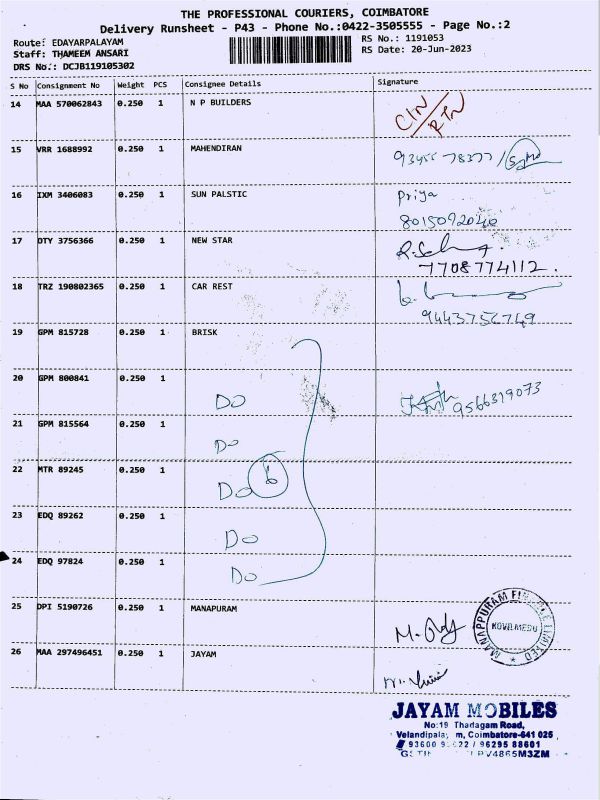 THE PROFESSIONAL COURIERS, COIMBATORE
Delivery Runsheet - P43 - Phone No.:0422-3505555 - Page No.:2
Route: EDAYARPALAYAM
RS No.: 1191053
Staff: THAMEEM ANSARI
RS Date: 20-Jun-2023
DRS No.: DCJB119105302
S No Consignment No Weight PCS Consignee Details Signature
14 MAA 570062843 0.250 1 N P BUILDERS
CIN/RTN
15 VRR 1688992 0.250 1 MAHENDIRAN
16 IXM 3406083 0.250 1 SUN PALSTIC Priya
17 DTY 3756366 0.250 1 NEW STAR
7708774112.
18 TRZ 190802365 0.250 1 CAR REST
9443752749
19 GPM 815728 0.250 1 BRISK
20 GPM 800841 0.250 1
Do 9566319073
21 GPM 815564 0.250 1
Do
22 MTR 89245 0.250 1
Do 6
23 EDQ 89262 0.250 1
Do
24 EDQ 97824 0.250 1
Do
25 DPI 5190726 0.250 1 MANAPURAM
MANAPPURAM FINANCE LIMITED
KOVILMEDU
26 MAA 297496451 0.250 1 JAYAM
JAYAM MOBILES
No:19 Thadagam Road,
Coimbatore-641 025
93600 / 96295 88601